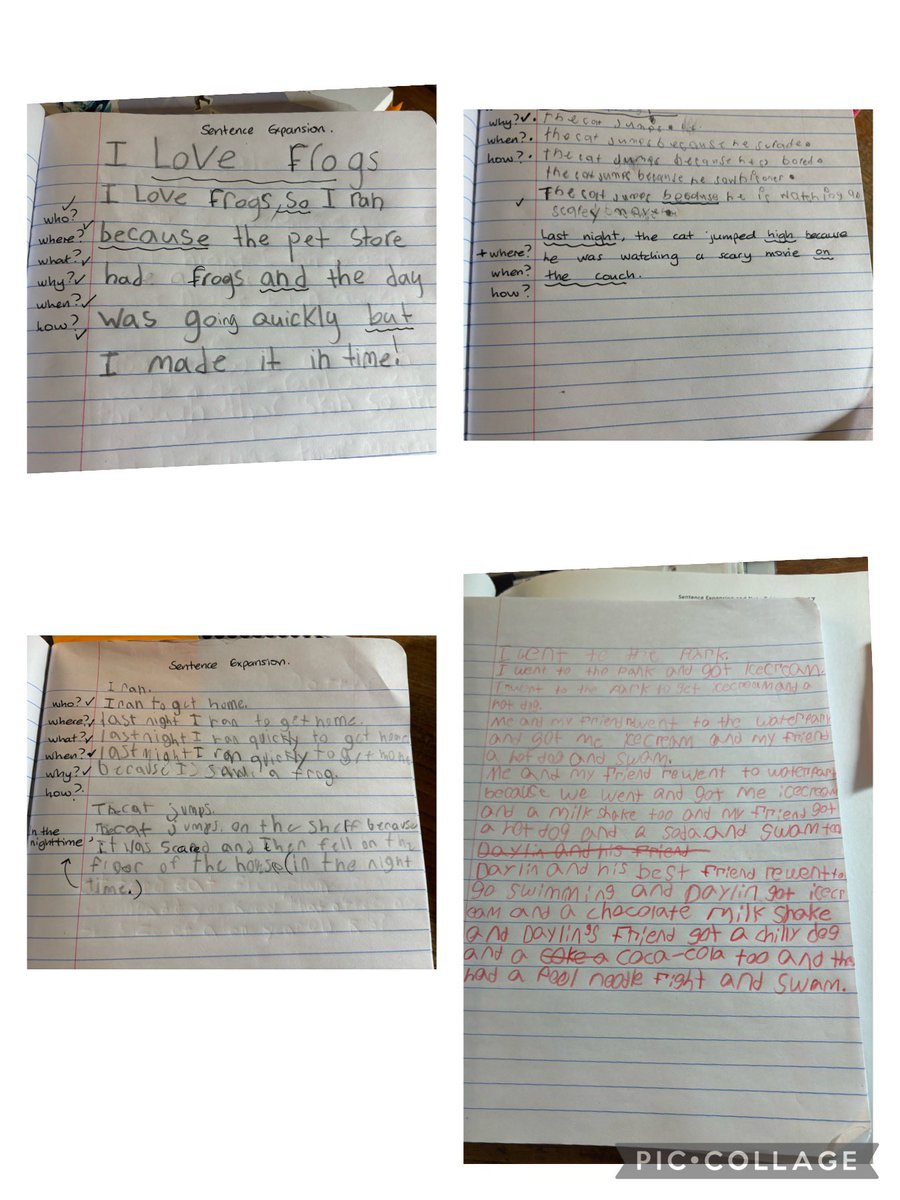 Sentence Expansion.
I Love Frogs
I Love Frogs, so I ran
who?
where?
because the pet store
what?
why?
had frogs and the day
when?
how?
was going quickly but
I made it in time!
why?
The cat jumps
when?
the cat jumps because he
how?
The cat jumps because bored.
the cat jumps because he
The cat jumps because he is watching
scarey
Last night, the cat jumped high because
+ where?
he was watching a scary movie on
when?
the couch.
how?
Sentence Expansion.
I ran.
who? I ran to get home.
where? last night I ran to get home.
what? last night I ran quickly to get home
when? last night I ran quickly to get home
why? because I saw a frog.
how?
The cat jumps.
The cat jumps on the shelf because
n the
nighttime
it was scared and then fell on the
floor of the house (in the night
time.)
Sentence Expansion and
I went to the Park.
I went to the Park and got icecream.
I went to the Park to get icecream and a
hot dog.
me and my friend rewent to the waterpark
and got me icecream and my friend
a hotdog and swam.
Me and my friend rewent to waterpark
because we went and got me icecream
and a milkshake too and my friend got
a hot dog and a soda and swam too
Daylin and his friend
Daylin and his best friend rewent to
go swimming and Daylin got icecr
eam and a chocolate milk shake
and Daylin's friend got a chilly dog
and a coke a coca-cola too and the
had a Pool noodle fight and swam.
PIC•COLLAGE